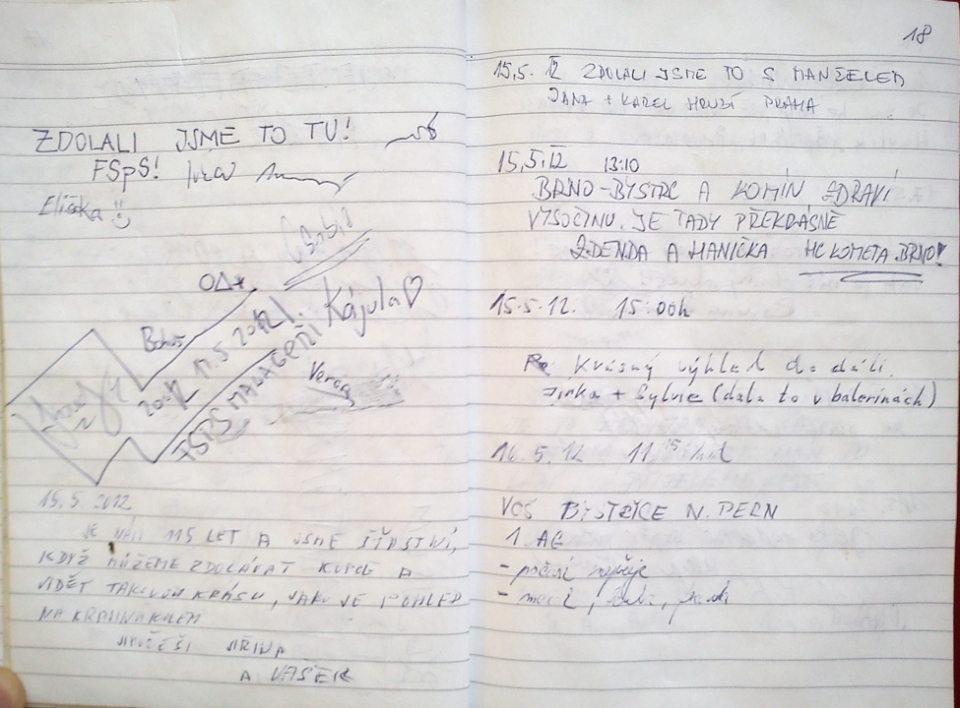 ZDOLALI JSME TO TU!
FSpS!
Eliška
Kájula
11.5 2012
FSPS MANAGEŘI
Verča
15.5 2012
JE NÁM 115 LET A JSME ŠŤASTNÍ,
KDYŽ MŮŽEME ZDOLÁVAT KOPCE A
VIDĚT TAKOVOU KRÁSU, JAKO JE POHLED
NA KRAJINU KOLEM
JIŘINA
A VAŠEK
18
15,5. 12 ZDOLALI JSME TO S MANŽELEM
JANA + KAREL PRAHA
15,5.12 13:10
BRNO-BYSTRC A KOMÍN ZDRAVÍ
VYSOČINU. JE TADY PŘEKRÁSNĚ
ZDENDA A HANIČKA HC KOMETA BRNO!
15.5.12. 15:00h
Krásný výhled do dáli.
Jirka + Sylvie (dala to v balerínách)
16.5.12 11 15 hod
VOŠ BYSTŘICE N. PERN
1. AG
- počasí nepřeje